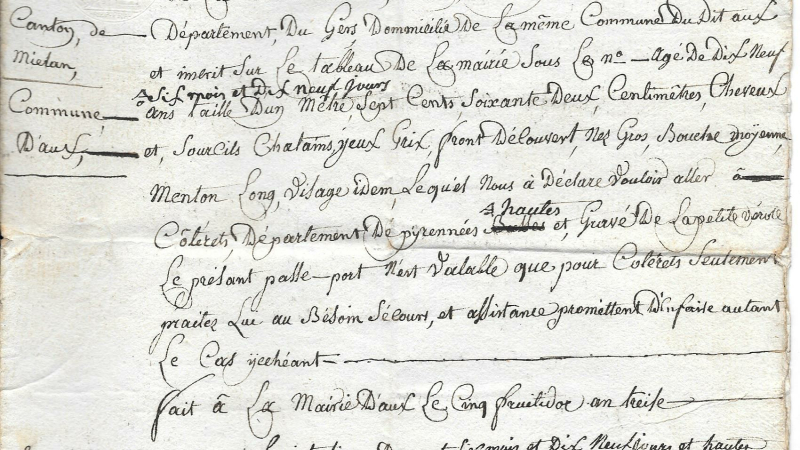 Canton, de
Mielan,
Commune
D'aux,
Département, Du Gers Dommicilié De La même Commune Du Dit aux
et inscrit Sur Le tableau De La mairie Sous Le no — agé De Dix Neuf
& Six mois et Dix neuf jours
ans taille D'un Métre Sept Cents, Soixante Deux, Centimétres, Cheveux
et, Sourcils Chatains, yeux Grix, front Découvert, Nez Gros, Bouche moÿenne,
Menton Long, Visage idem, Lequel Nous à Déclaré Vouloir aller â
& hautes
Côterets, Département De pyrennées et, Gravé De La petite vérole
Le présant passe-port N'est Valable que pour Coterets Seulement
praitez Lui au Bésoin Sécours, et assistance promettent D'en faire autant
Le Cas ÿ échéant
fait â La Mairie D'aux Le Cinq fruitidor an treise
mois et Dix Neuf jours et hautes